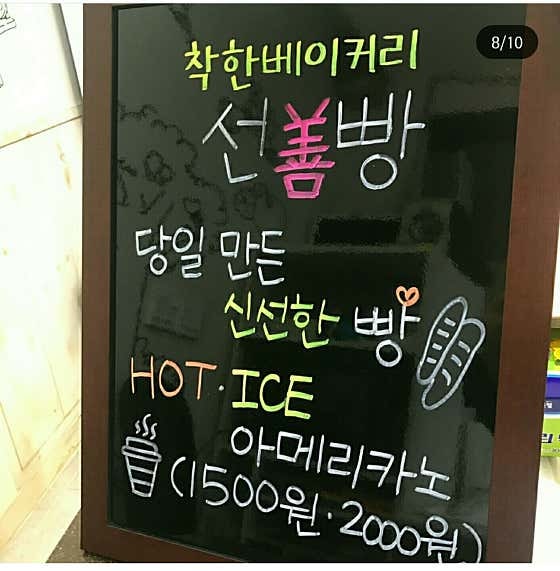 8/10
착한베이커리
선善빵
당일 만든
신선한 빵
HOT·ICE
아메리카노
(1500원·2000원)